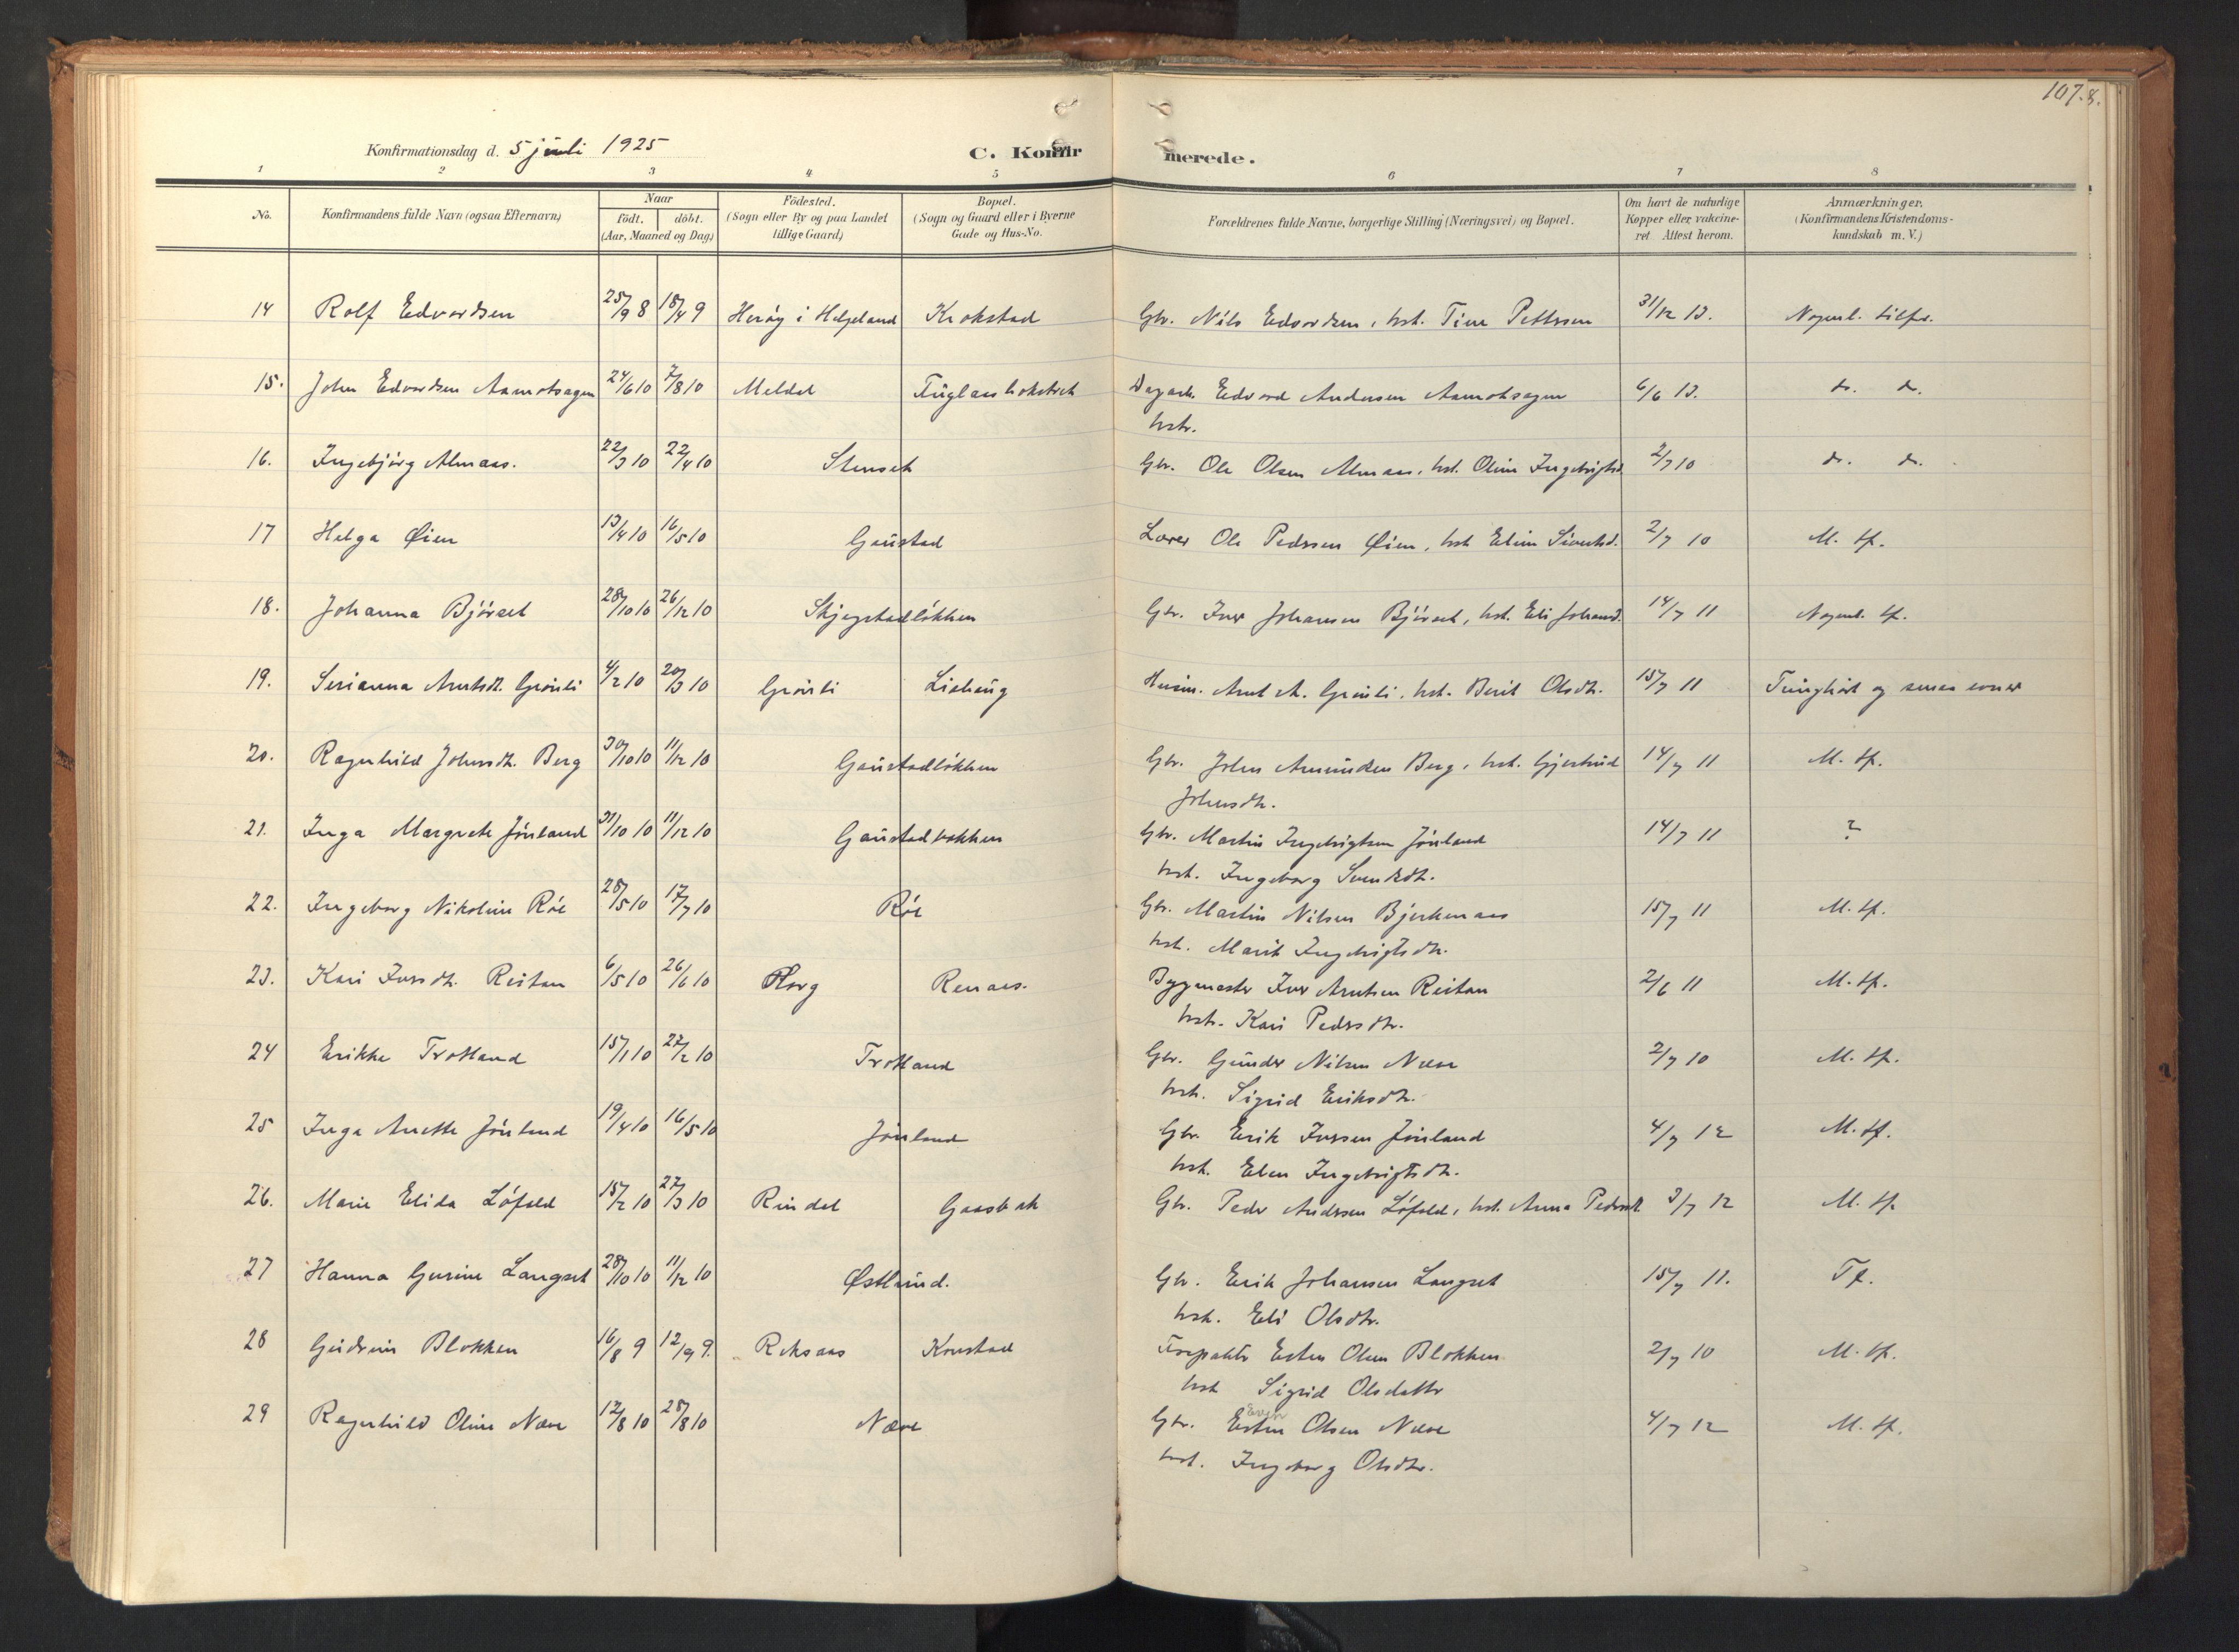 107.8.
Konfirmationsdag d. 5 juli 1925
C. Konfirmerede.
1 2 3 4 5 6 7 8
No. Konfirmandens fulde Navn (ogsaa Efternavn) Naar födt. döbt. (Aar, Maaned og Dag) Födested. (Sogn eller By og paa Landet tillige Gaard) Bopæl. (Sogn og Gaard eller i Byerne Gade og Hus-No. Forældrenes fulde Navne, borgerlige Stilling (Næringsvei) og Bopæl. Om havt de naturlige Kopper eller vakcineret Attest herom. Anmærkninger. (Konfirmandens Kristendomskundskab m. V.)
14 Rolf Edvardsen 25/9 8 18/4 9 Herøy i Helgeland Krokstad Gbr. Nils Edvardsen, hst. Tine Pettersen 31/12 13. Nogenl. tilfr.
15. John Edvardsen Aamotsagen 24/6 10 7/8 10 Meldal Edvard Andersen Aamotsagen 6/6 13. do. do.
hstr.
16. Ingebjørg Almaas. 22/3 10 22/4 10 Stenset Gbr. Ole Olsen Almaas, hst. Oline Ingebrigtsd. 2/7 10 do. do.
17 Helga Øien 13/4 10 16/5 10 Gaustad Lærer Ole Pedersen Øien, hst Eline Sivertsd. 2/7 10 M. tf.
18. Johanna Bjørset 28/10 10 26/12 10 Skjegstadløkken Gbr. Iver Johansen Bjørset, hst. Eli Johansd. 14/7 11 Nogenl. tf.
19. Serianna Arntsdt. Grønli 4/2 10 20/3 10 Grønli Liehaug Husm. Arnt A. Grønli, hst. Berit Olsdtr. 15/7 11 Tunghørt og smaa evner
20. Ragnhild Johnsdt. Berg 30/10 10 11/12 10 Gaustadløkken Gbr. John Amundsen Berg, hst. Gjertrud 14/7 11 M. tf.
Johnsdtr.
21. Inga Margrete Jønland 31/10 10 11/12 10 Gaustadbakken Gbr. Martin Ingebrigtsen Jønland 14/7 11 ?
hst. Ingeborg Svendsdtr.
22. Ingeborg Nikoline Røe 28/5 10 17/7 10 Røe Gbr. Martin Nilsen Bjerkenaas 15/7 11 M. tf.
hst. Marit Ingebrigtsdtr.
23. Kari Iversdtr. Reitan 6/5 10 26/6 10 Horg Renaas. Byggmester Iver Arntsen Reitan 2/6 11 M. tf.
hstr. Kari Pedersdtr.
24 Erikke Trotland 15/1 10 27/2 10 Trotland Gbr. Gunder Nilsen Næve 2/7 10 M. tf.
hst. Sigrid Eriksdtr.
25 Inga Anette Jønland 19/4 10 16/5 10 Jønland Gbr. Erik Iversen Jønland 4/7 12 M. tf.
hst. Elen Ingebrigtsdtr.
26. Marie Elida Løfald 15/2 10 27/3 10 Rindal Gaasbak Gbr. Peder Andersen Løfald, hst. Anna Pedersdt. 3/7 12 M. tf.
27 Hanna Gurine Langset 28/10 10 11/12 10 Østlund. Gbr. Erik Johansen Langset 15/7 11. Tf.
hst. Eli Olsdtr.
28 Gudrun Blokken 16/8 9 12/9 9. Reksaas Konstad Forpakter Esten Olsen Blokken 2/7 10 M. tf.
hst Sigrid Olsdatter
29 Ragnhild Oline Næve 12/8 10 28/8 10 Næve Gbr. Esten Olsen Næve 4/7 12 M. tf.
Even
hst. Ingeborg Olsdtr.